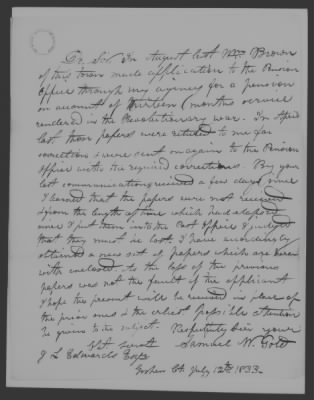 Dr Sir. In August last Mr Brown
of this town made application to the Pension
Office through my agency for a pension
on account of thirteen months service
rendered in the Revolutionary war. In
last those papers were returned to me for
correction & were sent on again to the Pension
Office with the required corrections. By your
last communication received a few days since
I learned that the papers were not received
& from the length of time which has elapsed
since I put them into the Post Office I judged
that they must be lost I have accordingly
obtained a new set of papers which are here
with enclosed. As the loss of the previous
papers was not the fault of the applicant
I hope the present will be received in place of
the prior ones & the earliest possible attention
be given to the subject. Respectfully Sir your
obt. servt Samuel W. Gold
J L Edwards Esqr
Goshen Ct July 12th 1833.